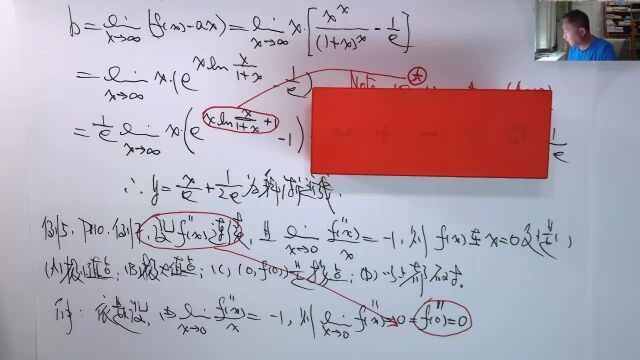 b = lim x→∞ (f(x)-ax) = lim x→∞ x·[x^x/(1+x)^x - 1/e]
= lim x→∞ x·(e^{x ln x/(1+x)} - 1/e)
= 1/e lim x→∞ x·(e^{x ln x/(1+x) +1} -1) 1/e
∴ y = x/e + 1/2e 为斜渐近线.
例5. 例 设 f''(x) 连续, 且 lim x→0 f''(x)/x = -1, 则 f(x) 在 x=0 处
(A) 极小值点; (B) 极大值点; (C) (0, f(0)) 拐点; (D) 以上都不对.
解: 依题设, 由 lim x→0 f''(x)/x = -1, 则 lim x→0 f''(x) = 0 = f''(0) = 0